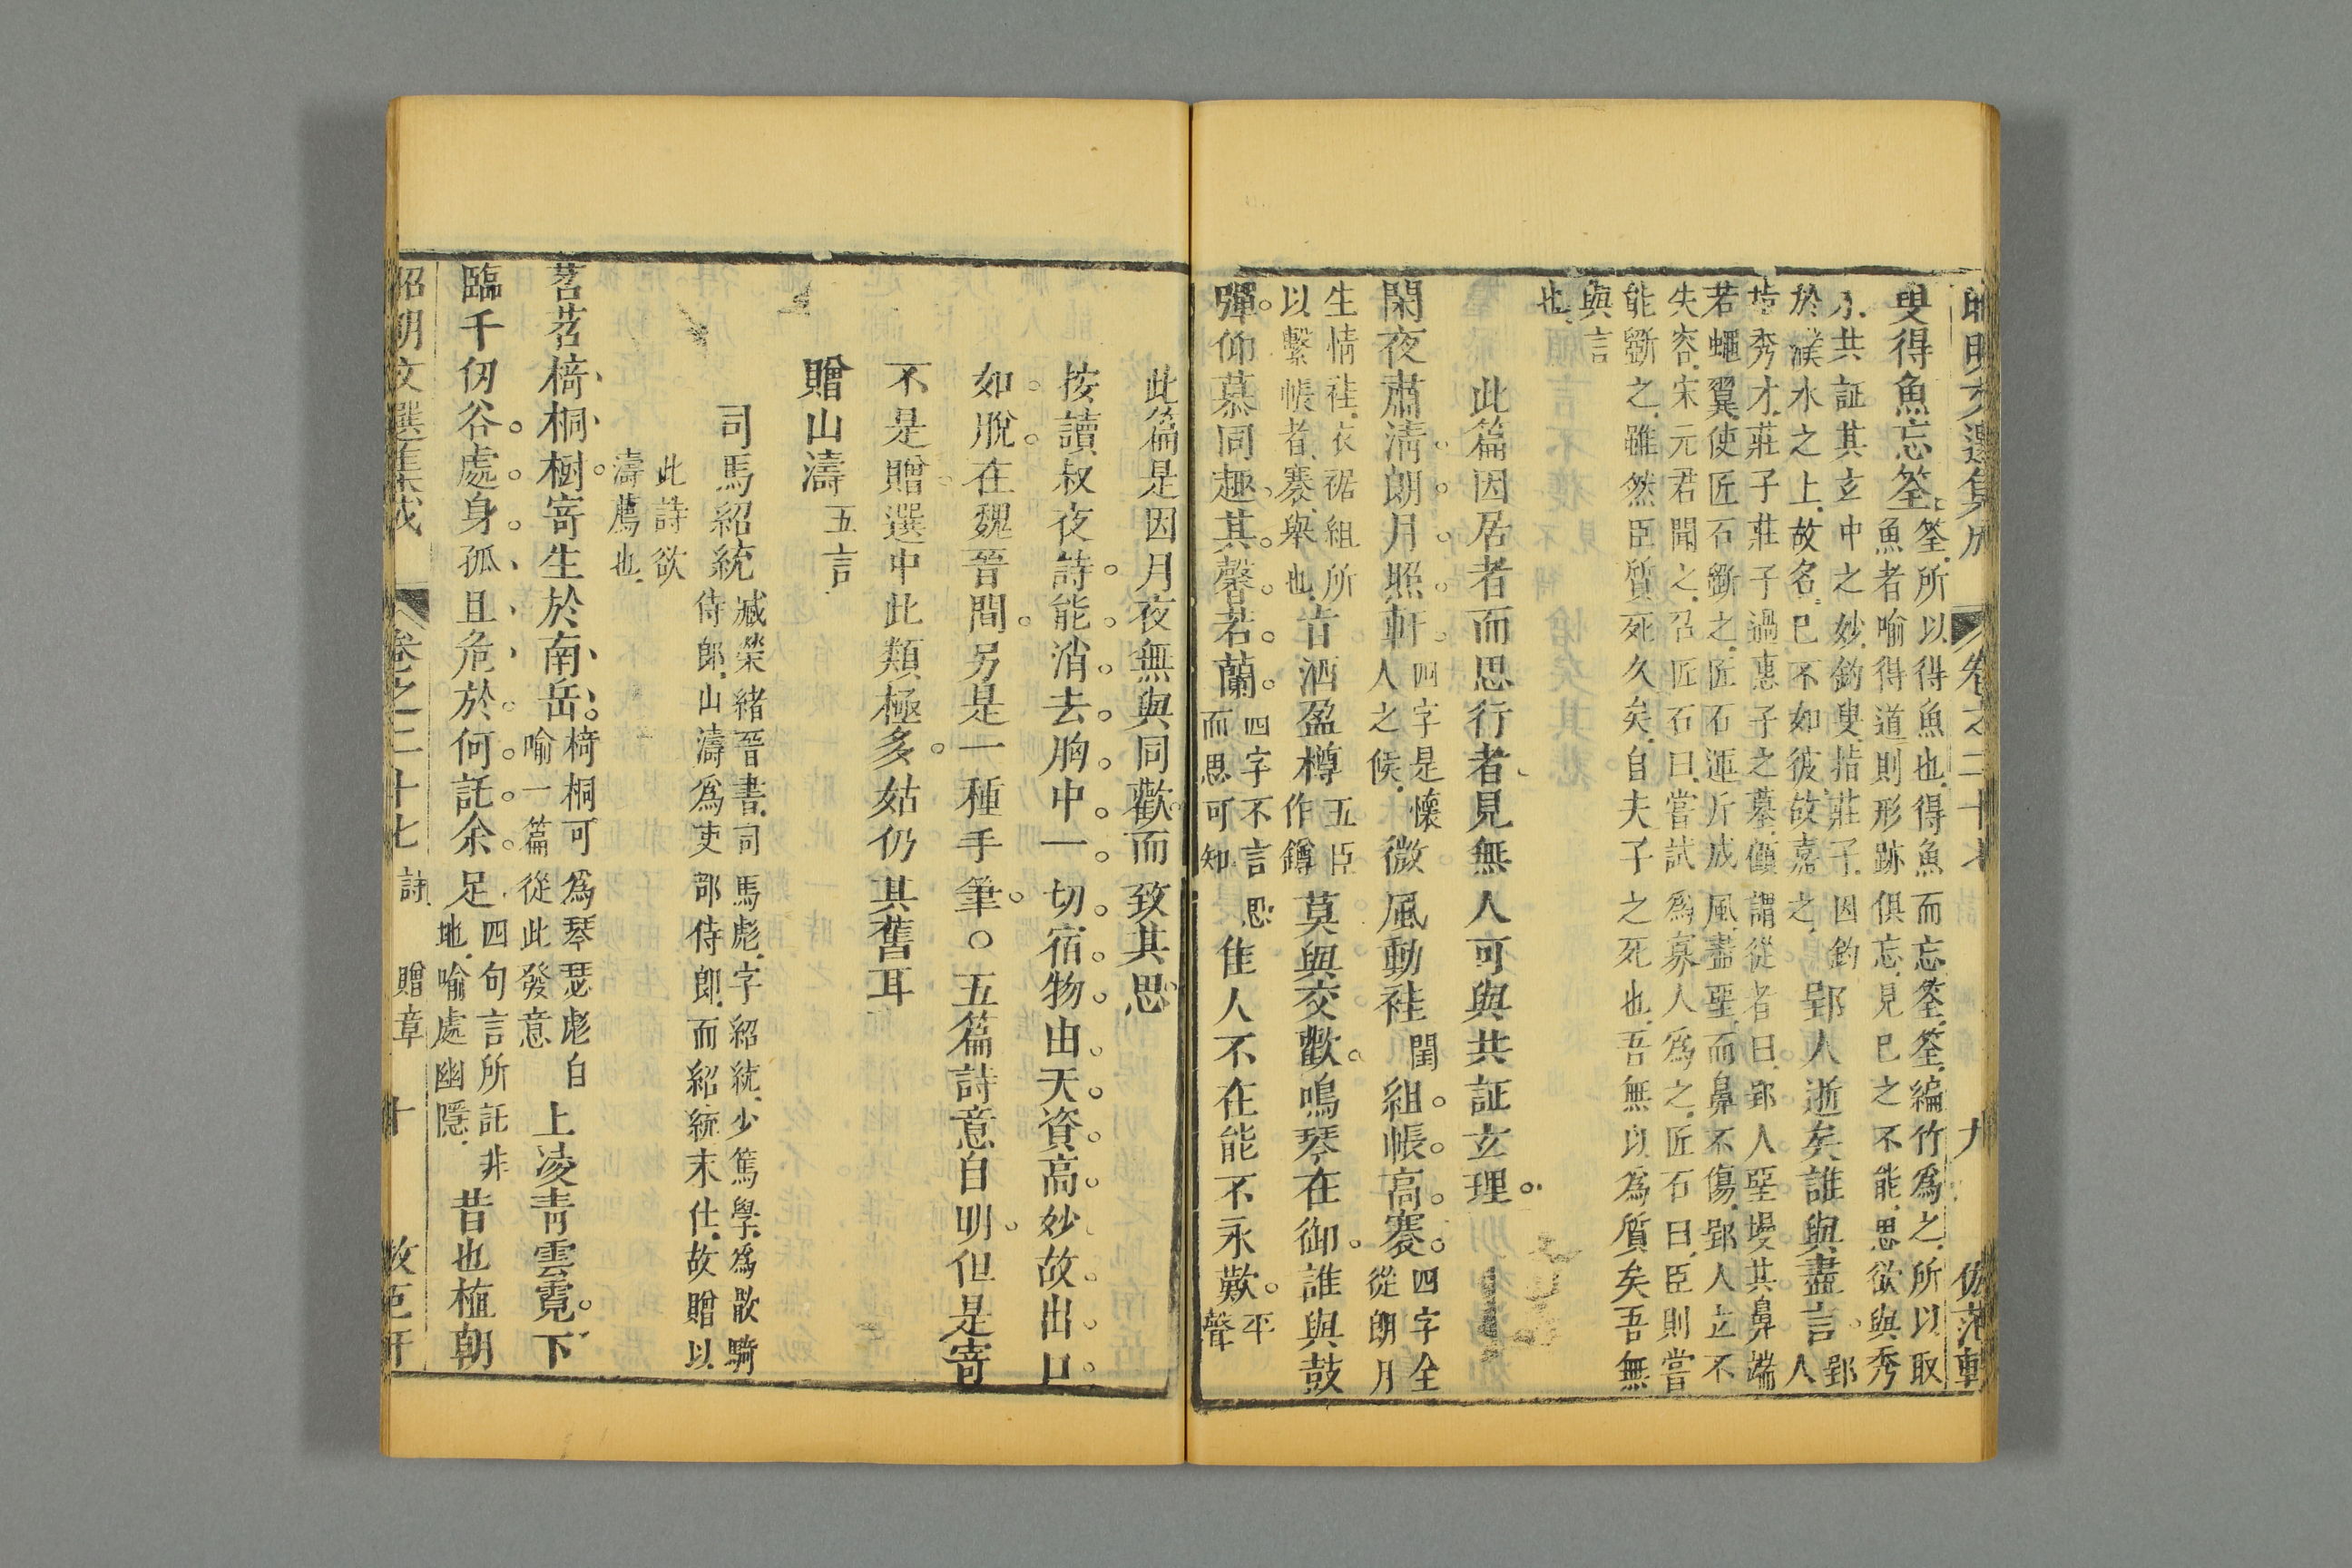 昭明文選集成 卷之二十七 九 倣范軒
叟得魚忘筌筌所以得魚也得魚而忘筌筌編竹爲之所以取
魚者喻得道則形跡俱忘見巳之不能思欲與秀
共証其玄中之妙釣叟指莊子因釣
於濮水之上故名巳不如彼故嘉之郢人逝矣誰與盡言郢
人
秀才莊子莊子過惠子之墓顧謂從者曰郢人堊墁其鼻端
若蠅翼使匠石斵之匠石運斤成風盡堊而鼻不傷郢人立不
失容宋元君聞之召匠石曰嘗試爲寡人爲之匠石曰臣則嘗
能斵之雖然臣質死久矣自夫子之死也吾無以爲質矣吾無
與言
也
此篇因居者而思行者見無人可與共証玄理
閑夜肅清朗月照軒四字是懷
人之候微風動袿閨組帳高褰四字全
從朗月
生情袿衣裾組所
以繫帳者褰舉也旨酒盈樽五臣
作鐏莫與交歡鳴琴在御誰與鼓
彈仰慕同趣其馨若蘭四字不言思
而思可知佳人不在能不永歎平
聲
此篇是因月夜無與同歡而致其思
按讀叔夜詩能消去胸中一切宿物由天資高妙故出口
如脫在魏晉間另是一種手筆○五篇詩意自明但是寄
不是贈選中此類極多姑仍其舊耳
贈山濤五言
司馬紹統臧榮緒晉書司馬彪字紹統少篤學爲散騎
侍郎山濤爲吏部侍郎而紹統未仕故贈以
此詩欲
濤薦也
苕苕椅桐樹寄生於南岳椅桐可爲琴瑟彪自
喻一篇從此發意上凌青雲霓下
臨千仞谷處身孤且危於何託余足四句言所託非
地喻處幽隱昔也植朝
昭明文選集成 卷之二十七 詩 贈章 十